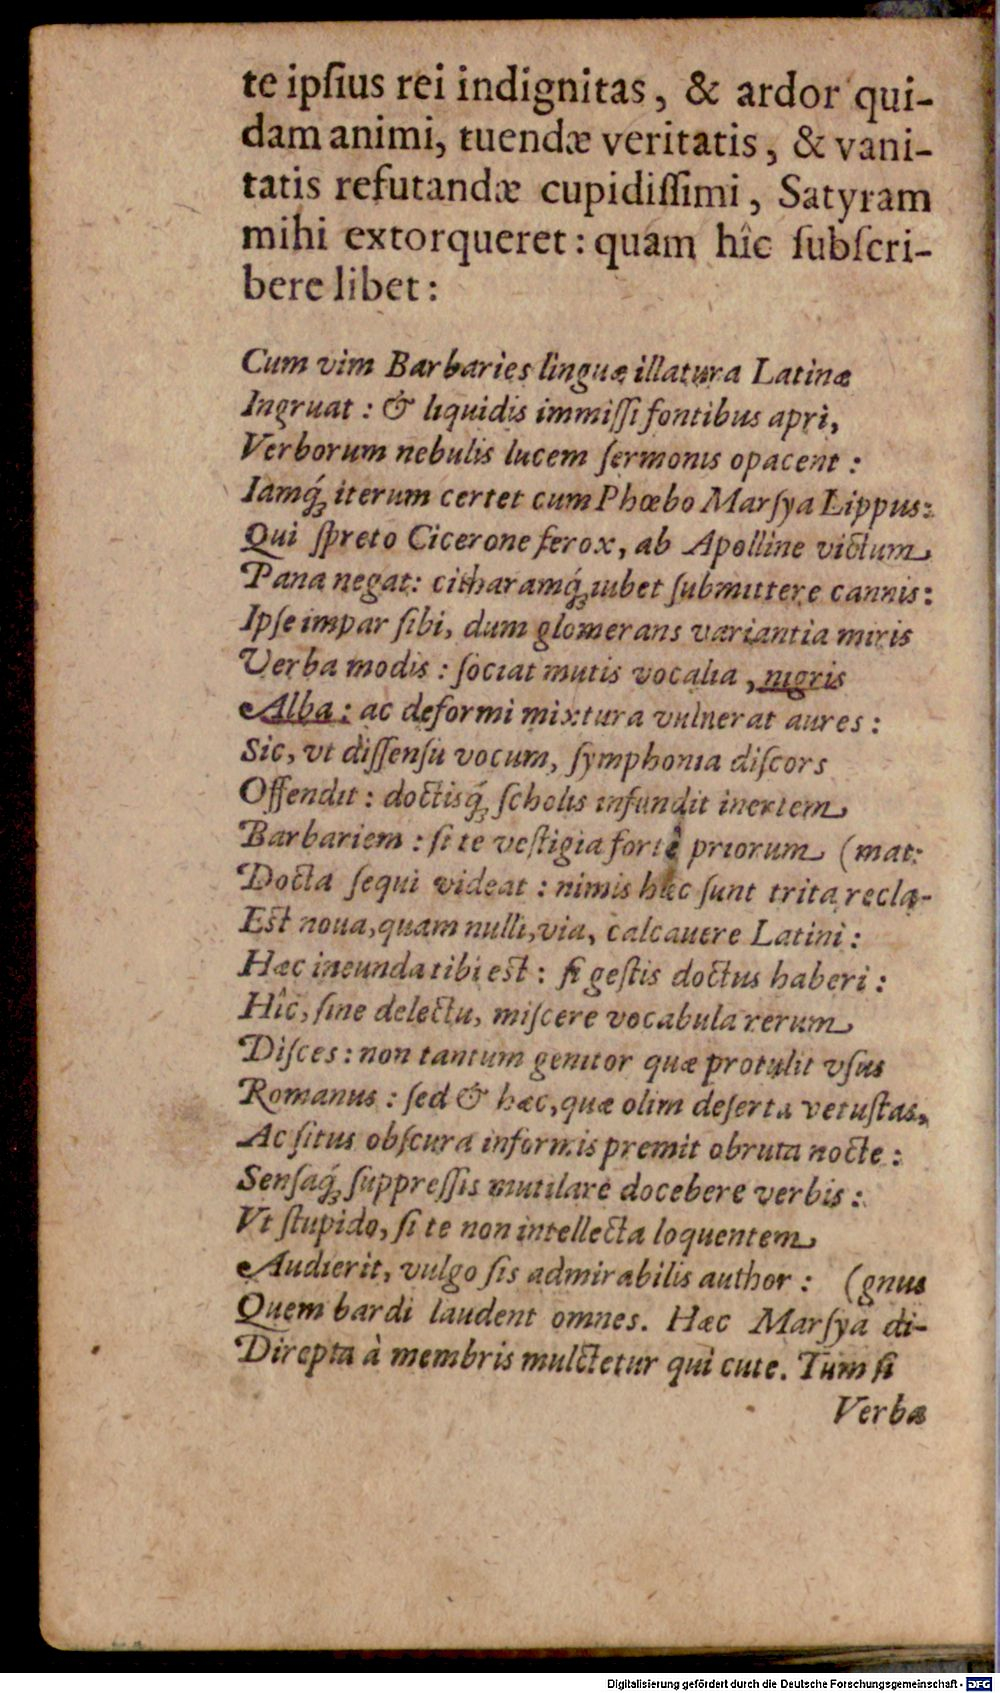 te ipſius rei indignitas, & ardor qui-
dam animi, tuendæ veritatis, & vani-
tatis refutandæ cupidiſſimi, Satyram
mihi extorqueret: quam hîc ſubſcri-
bere libet:
Cum vim Barbaries linguæ illatura Latinæ
Ingruat: & liquidis immiſſi fontibus apri,
Verborum nebulis lucem ſermonis opacent:
Iamq́; iterum certet cum Phœbo Marſya Lippus:
Qui ſpreto Cicerone ferox, ab Apolline victum
Pana negat: citharamq́; iubet ſubmittere cannis:
Ipſe impar ſibi, dum glomerans variantia miris
Verba modis: ſociat mutis vocalia, nigris
Alba: ac deformi mixtura vulnerat aures:
Sic, vt diſſenſu vocum, ſymphonia diſcors
Offendit: doctisq́; ſcholis infundit inertem
Barbariem: ſi te veſtigia fortè priorum (mat:
Docta ſequi videat: nimis hæc ſunt trita, recla-
Eſt noua, quam nulli, via, calcauere Latini:
Hæc ineunda tibi eſt: ſi geſtis doctus haberi:
Hîc, ſine delectu, miſcere vocabula rerum
Diſces: non tantum genitor quæ protulit vſus
Romanus: ſed & hæc, quæ olim deſerta vetuſtas,
Ac ſitus obſcura informis premit obruta nocte:
Senſaq́; ſuppreſſis mutilare docebere verbis:
Vt ſtupido, ſi te non intellecta loquentem
Audierit, vulgo ſis admirabilis author: (gnus
Quem bardi laudent omnes. Hæc Marſya di-
Direpta à membris mulctetur qui cute. Tum ſi
Verba
Digitalisierung gefördert durch die Deutsche Forschungsgemeinschaft - DFG